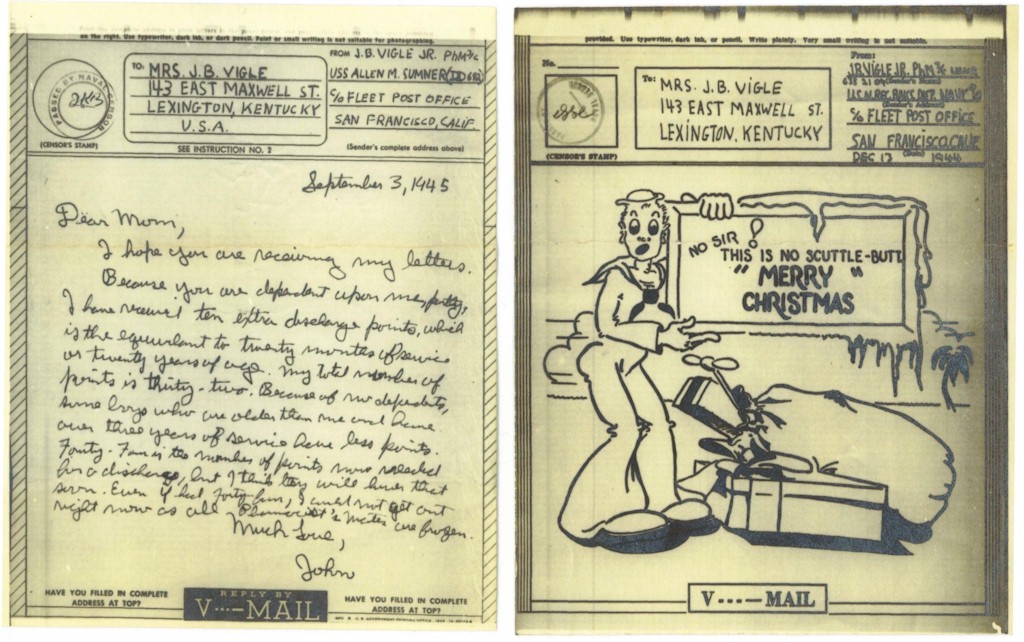 on the right. Use typewriter, dark ink, or dark pencil. Faint or small writing is not suitable for photographing.
PASSED BY NAVAL CENSOR
TO: MRS. J. B. VIGLE
143 EAST MAXWELL ST.
LEXINGTON, KENTUCKY
U.S.A.
FROM J. B. VIGLE JR. PhM
USS ALLEN M. SUMNER
C/O FLEET POST OFFICE
SAN FRANCISCO, CALIF.
(CENSOR'S STAMP)
SEE INSTRUCTION NO. 2
(Sender's complete address above)
September 3, 1945
Dear Mom,
I hope you are receiving my letters.
Because you are dependent upon me,
I have received ten extra discharge points, which
is the equivalent to twenty months of service
or twenty years of age. My total number of
points is thirty-two. Because of no dependents,
some boys who are older than me and have
over three years of service have less points.
Forty-Four is the number of points now needed
for a discharge, but I think they will lower that
soon. Even if I had forty-four, I could not get out
right now as all Pharmacist's Mates are frozen.
Much Love,
John
HAVE YOU FILLED IN COMPLETE
ADDRESS AT TOP?
REPLY BY
V···—MAIL
HAVE YOU FILLED IN COMPLETE
ADDRESS AT TOP?
provided. Use typewriter, dark ink, or pencil. Write plainly. Very small writing is not suitable.
No.
(CENSOR'S STAMP)
To: MRS. J. B. VIGLE
143 EAST MAXWELL ST.
LEXINGTON, KENTUCKY
From:
J.B. VIGLE JR. PhM
(Sender's name)
(Sender's address)
C/O FLEET POST OFFICE
SAN FRANCISCO, CALIF
(Date)
DEC 1944
NO SIR!
THIS IS NO SCUTTLE-BUTT
"MERRY"
CHRISTMAS
V···—MAIL